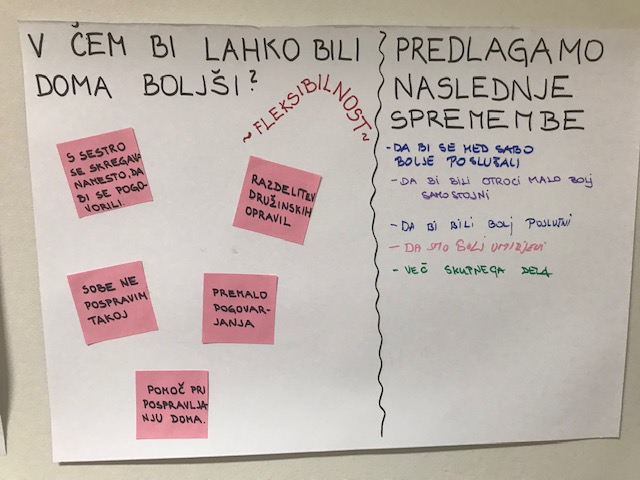 V ČEM BI LAHKO BILI
DOMA BOLJŠI?
~FLEKSIBILNOST~
S SESTRO
SE SKREGAVA
NAMESTO, DA
BI SE POGO-
VORILI.
RAZDELITEV
DRUŽINSKIH
OPRAVIL
SOBE NE
POSPRAVIM
TAKOJ
PREMALO
POGOVAR-
JANJA
POMOČ PRI
POSPRAVLJA
NJU DOMA.
PREDLAGAMO
NASLEDNJE
SPREMEMBE
-DA BI SE MED SABO
BOLJE POSLUŠALI
-DA BI BILI OTROCI MALO BOLJ
SAMOSTOJNI
-DA BI BILI BOLJ POSLUŠNI
-DA SMO BOLJ UMIRJENI
-VEČ SKUPNEGA DELA